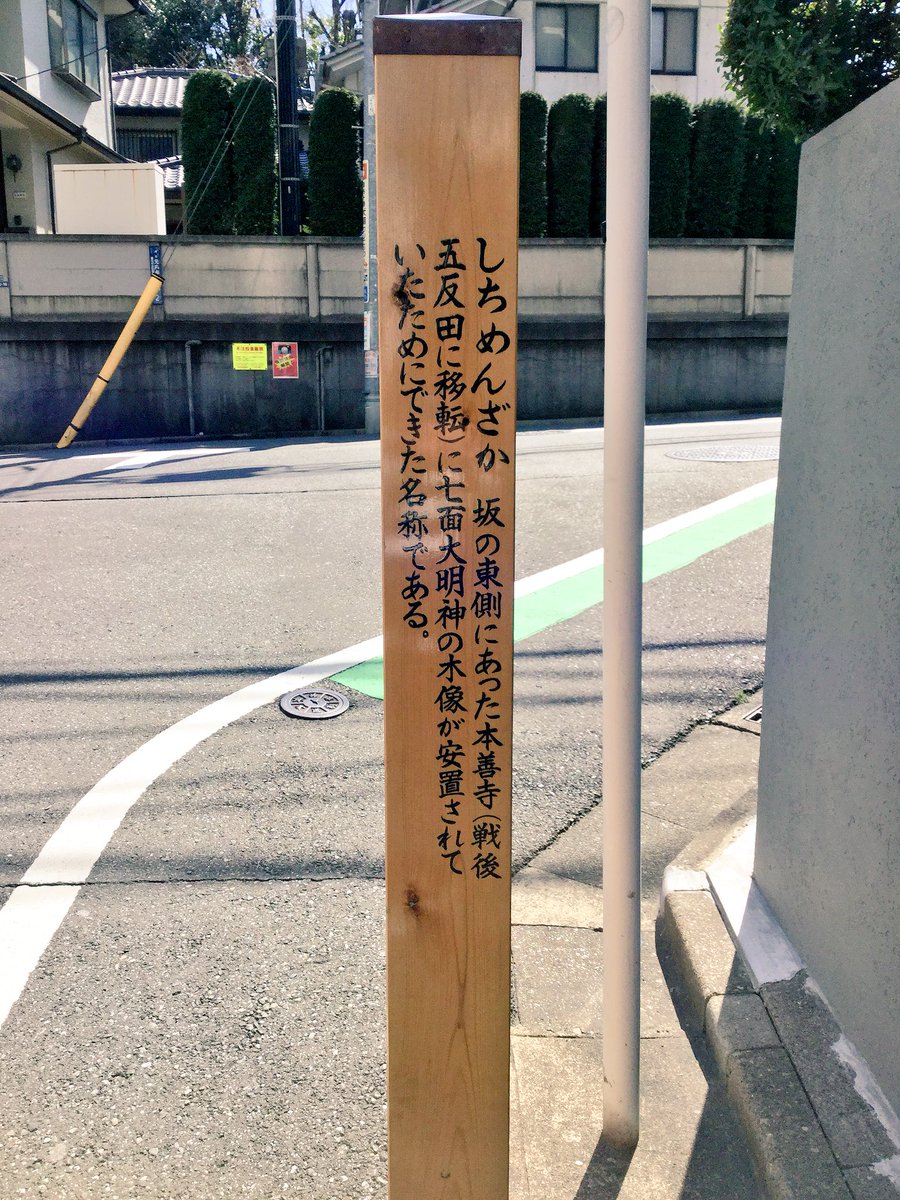 しちめんざか 坂の東側にあった本善寺(戦後
五反田に移転)に七面大明神の木像が安置されて
いたためにできた名称である。